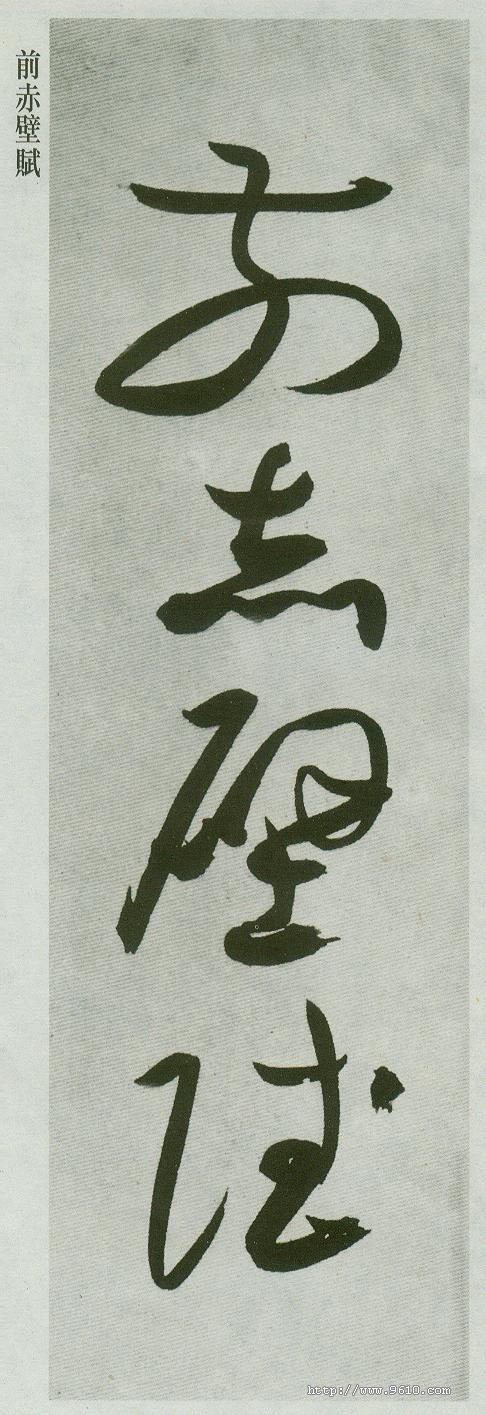 前赤壁賦
前赤壁賦
http://www.9610.com